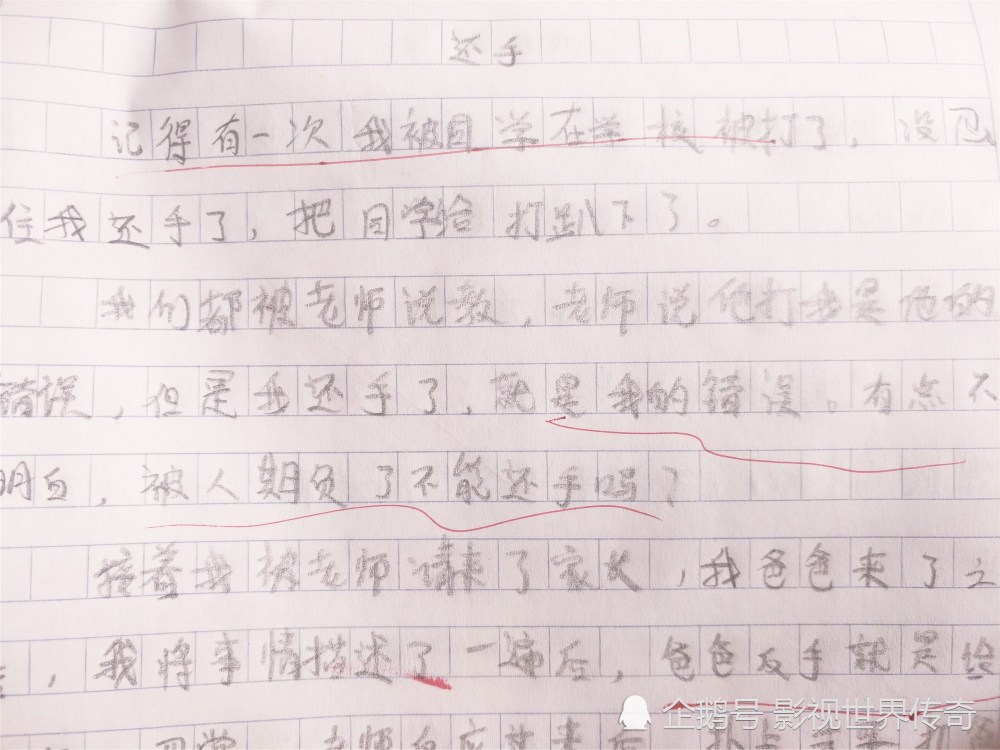 还手
记得有一次我被同学在学校被打了，没忍
住我还手了，把同学给打趴下了。
我们都被老师说教，老师说他打我是他的
错误，但是我还手了，就是我的错误。有点不
明白，被人期负了不能还手吗？
接着我被老师请来了家长，我爸爸来了之
，我将事情描述了一遍后，爸爸反手就是给
同学 老师
企鹅号 影视世界传奇